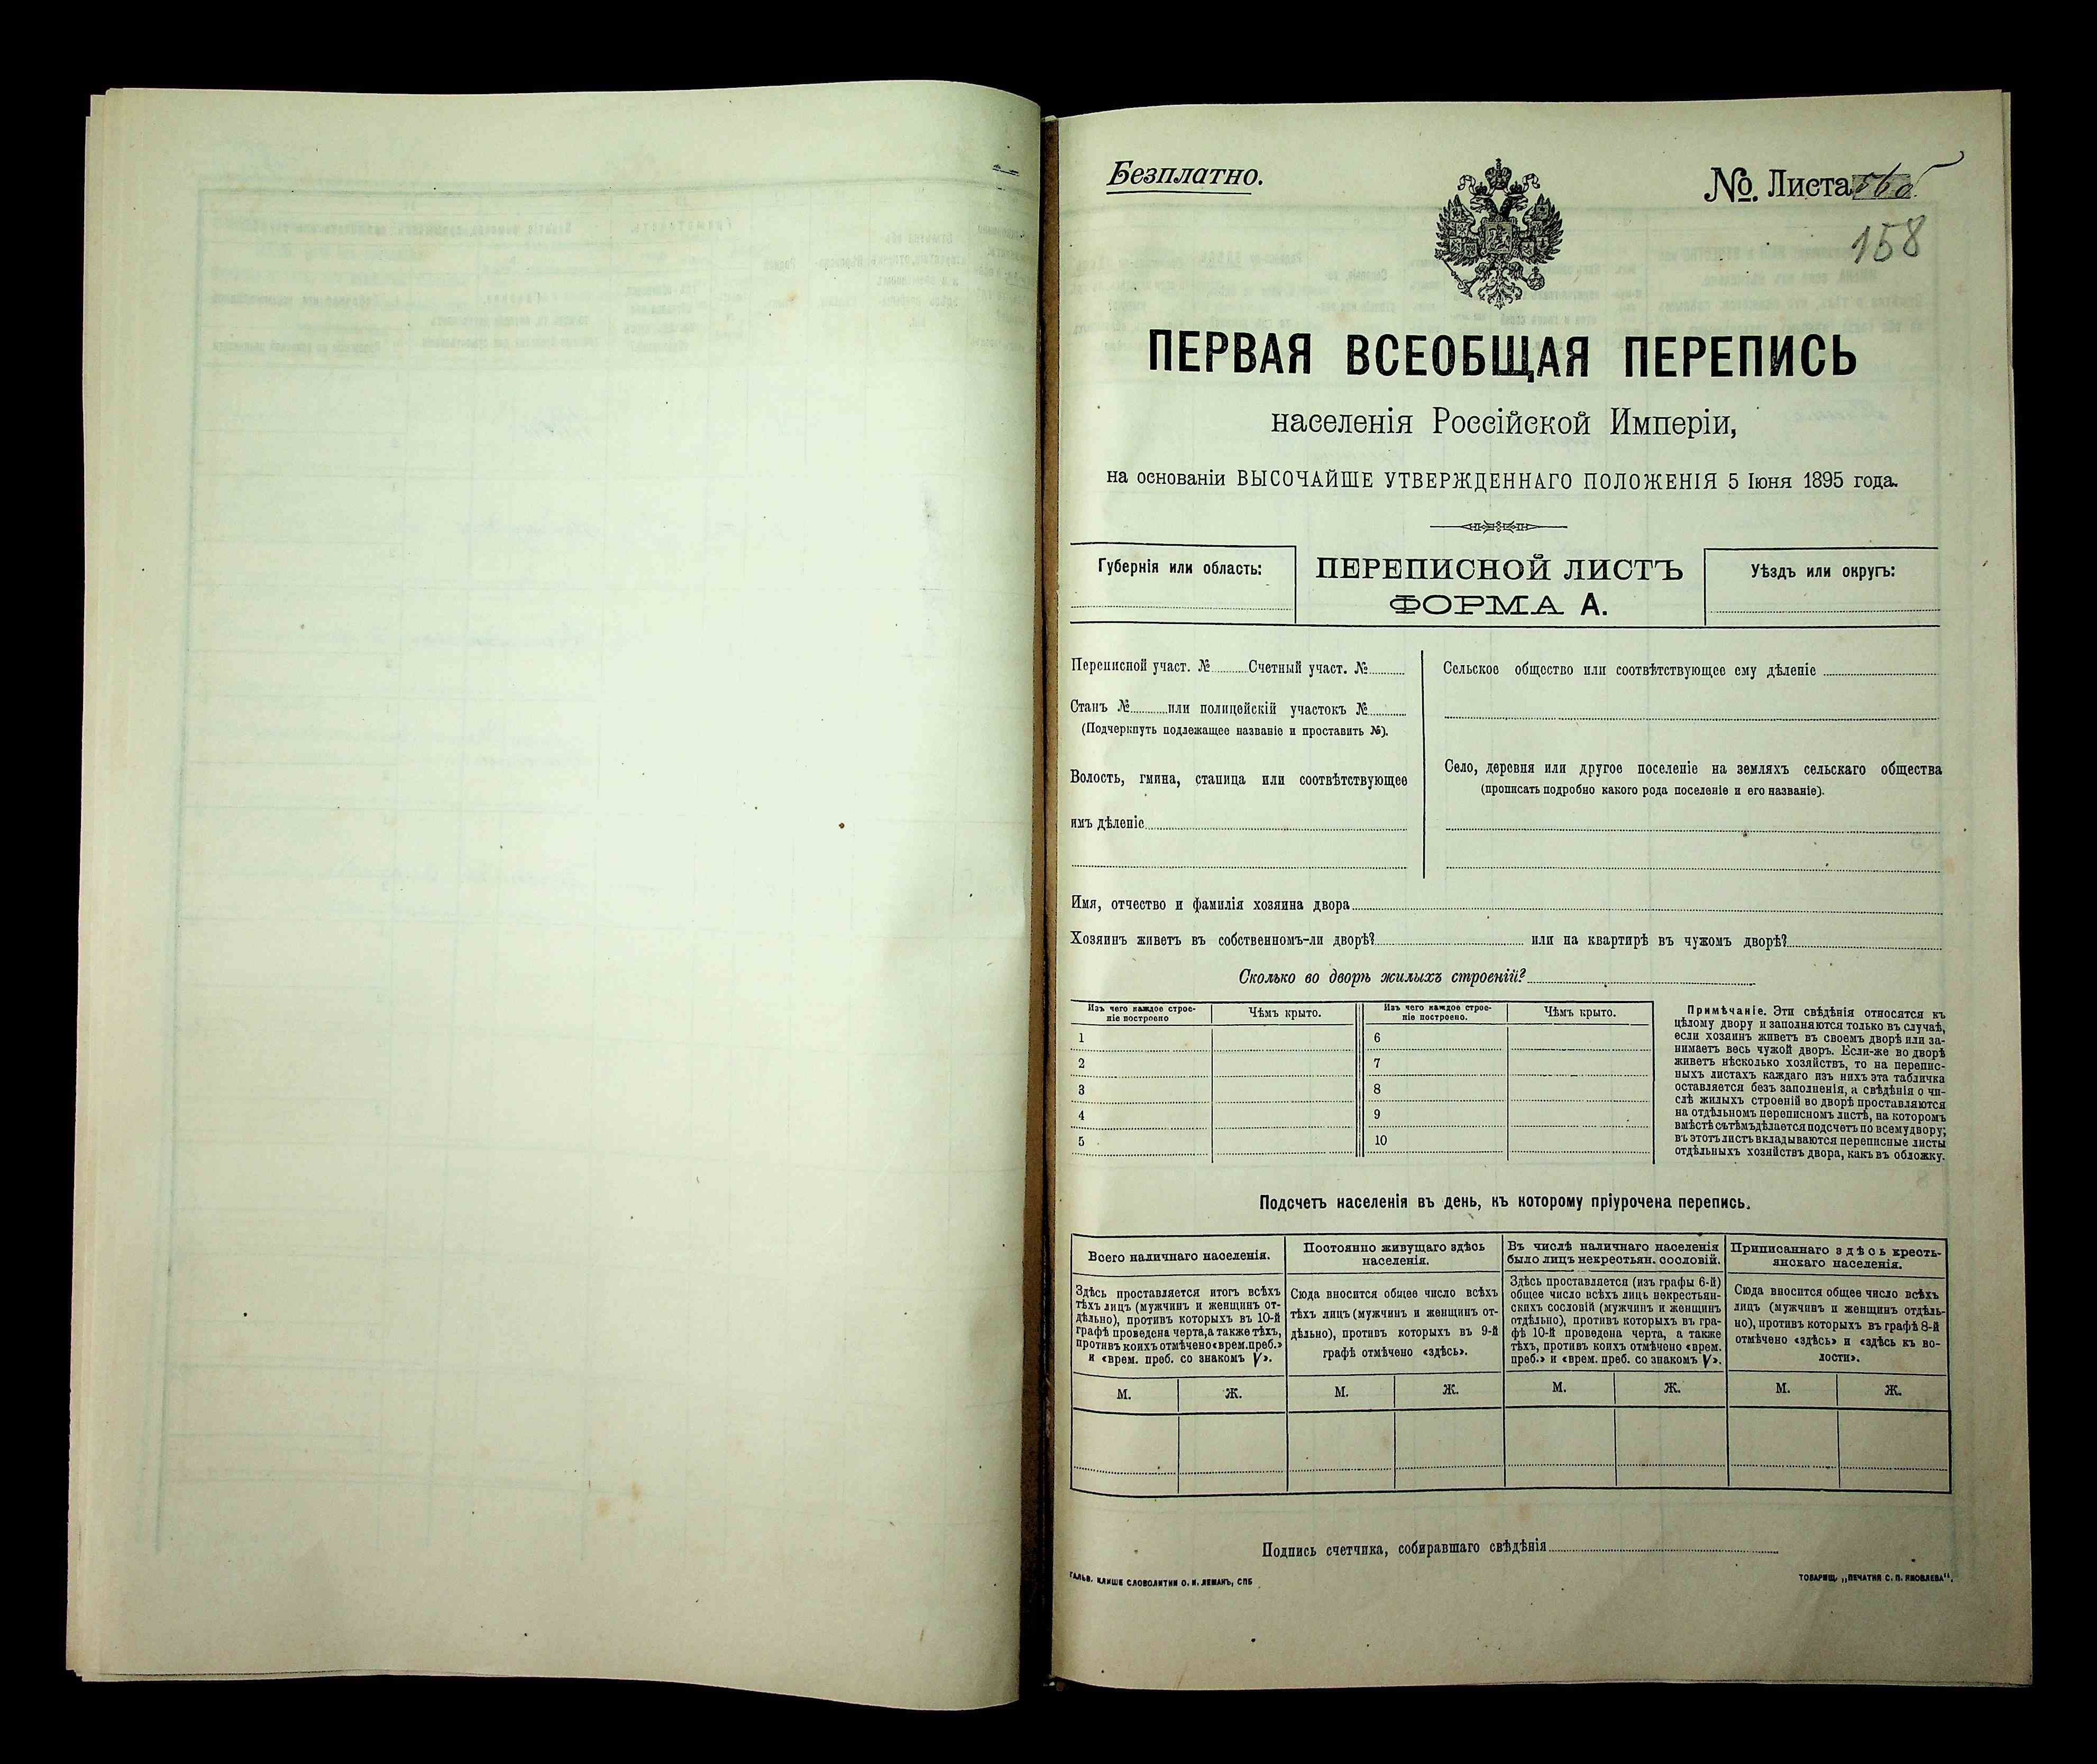 Безплатно.
№. Листа
158
ПЕРВАЯ ВСЕОБЩАЯ ПЕРЕПИСЬ
населенія Россійской Имперіи,
на основаніи ВЫСОЧАЙШЕ УТВЕРЖДЕННАГО ПОЛОЖЕНІЯ 5 Іюня 1895 года.
Губернія или область:
ПЕРЕПИСНОЙ ЛИСТЪ
ФОРМА А.
Уѣздъ или округъ:
Переписной участ. № Счетный участ. №
Станъ № или полицейскій участокъ №
(Подчеркнуть подлежащее названіе и проставить №).
Волость, гмина, станица или соотвѣтствующее
имъ дѣленіе
Сельское общество или соотвѣтствующее ему дѣленіе
Село, деревня или другое поселеніе на земляхъ сельскаго общества
(прописать подробно какого рода поселеніе и его названіе).
Имя, отчество и фамилія хозяина двора
Хозяинъ живетъ въ собственномъ-ли дворѣ? или на квартирѣ въ чужомъ дворѣ?
Сколько во дворѣ жилыхъ строеній?
Изъ чего каждое строе-
ніе построено
Чѣмъ крыто.
Изъ чего каждое строе-
ніе построено.
Чѣмъ крыто.
1
2
3
4
5
6
7
8
9
10
Примѣчаніе. Эти свѣдѣнія относятся къ
цѣлому двору и заполняются только въ случаѣ,
если хозяинъ живетъ въ своемъ дворѣ или за-
нимаетъ весь чужой дворъ. Если-же во дворѣ
живетъ нѣсколько хозяйствъ, то на перепис-
ныхъ листахъ каждаго изъ нихъ эта табличка
оставляется безъ заполненія, а свѣдѣнія о чи-
слѣ жилыхъ строеній во дворѣ проставляются
на отдѣльномъ переписномъ листѣ, на которомъ
вмѣстѣ съ тѣмъ дѣлается подсчетъ по всему двору;
въ этотъ листъ вкладываются переписные листы
отдѣльныхъ хозяйствъ двора, какъ въ обложку.
Подсчетъ населенія въ день, къ которому пріурочена перепись.
Всего наличнаго населенія.
Здѣсь проставляется итогъ всѣхъ
тѣхъ лицъ (мужчинъ и женщинъ от-
дѣльно), противъ которыхъ въ 10-й
графѣ проведена черта, а также тѣхъ,
противъ коихъ отмѣчено «врем. преб.»
и «врем. преб. со знакомъ V».
М. Ж.
Постоянно живущаго здѣсь
населенія.
Сюда вносится общее число всѣхъ
тѣхъ лицъ (мужчинъ и женщинъ от-
дѣльно), противъ которыхъ въ 9-й
графѣ отмѣчено «здѣсь».
М. Ж.
Въ числѣ наличнаго населенія
было лицъ некрестьян. сословій.
Здѣсь проставляется (изъ графы 6-й)
общее число всѣхъ лицъ некрестьян-
скихъ сословій (мужчинъ и женщинъ
отдѣльно), противъ которыхъ въ гра-
фѣ 10-й проведена черта, а также
тѣхъ, противъ коихъ отмѣчено «врем.
преб.» и «врем. преб. со знакомъ V».
М. Ж.
Приписаннаго здѣсь кресть-
янскаго населенія.
Сюда вносится общее число всѣхъ
лицъ (мужчинъ и женщинъ отдѣль-
но), противъ которыхъ въ графѣ 8-й
отмѣчено «здѣсь» и «здѣсь къ во-
лости».
М. Ж.
Подпись счетчика, собиравшаго свѣдѣнія
ГАЛЬВ. КЛИШЕ СЛОВОЛИТНИ О. И. ЛЕМАНЪ, СПБ
ТОВАРИЩ. „ПЕЧАТНЯ С. П. ЯКОВЛЕВА".